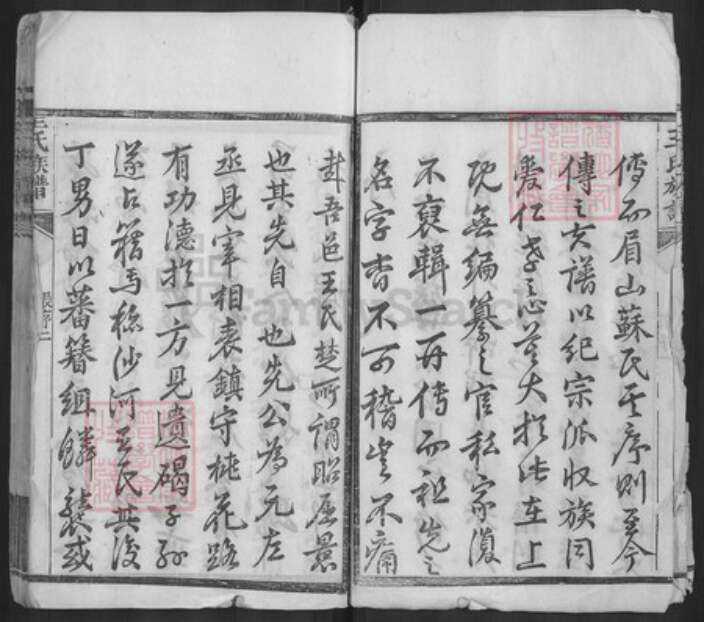 傳而眉山蘇氏其序則至今
傳之夫譜以紀宗派收族同
愛仁孝之心莫大於此在上
既無編纂之官私家復
不裒輯一再傳而祖先之
名字杳不可稽豈不痛
哉吾邑王氏楚所謂昭屈景
也其先自 也先公為元左
丞見宰相表鎮守桃花路
有功德於一方見遺碣子孫
遂占籍焉稱沙河王氏其後
丁男日以蕃簪組鱗襲或
王氏族譜
王氏族譜
張序二
FamilySearch